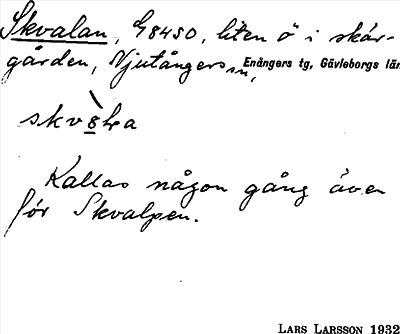 Skvalan, G8450, liten ö i skär-
gården, Njutångers sn, Enångers tg, Gävleborgs län
Kallas någon gång även
för Skvalpen.
LARS LARSSON 1932